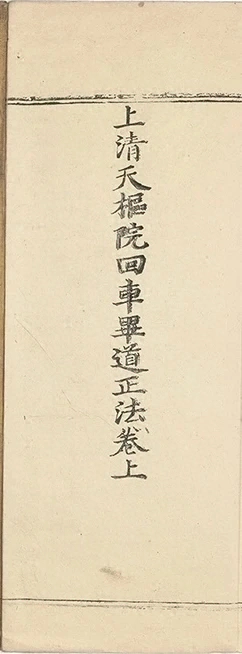 上清天樞院回車畢道正法卷上